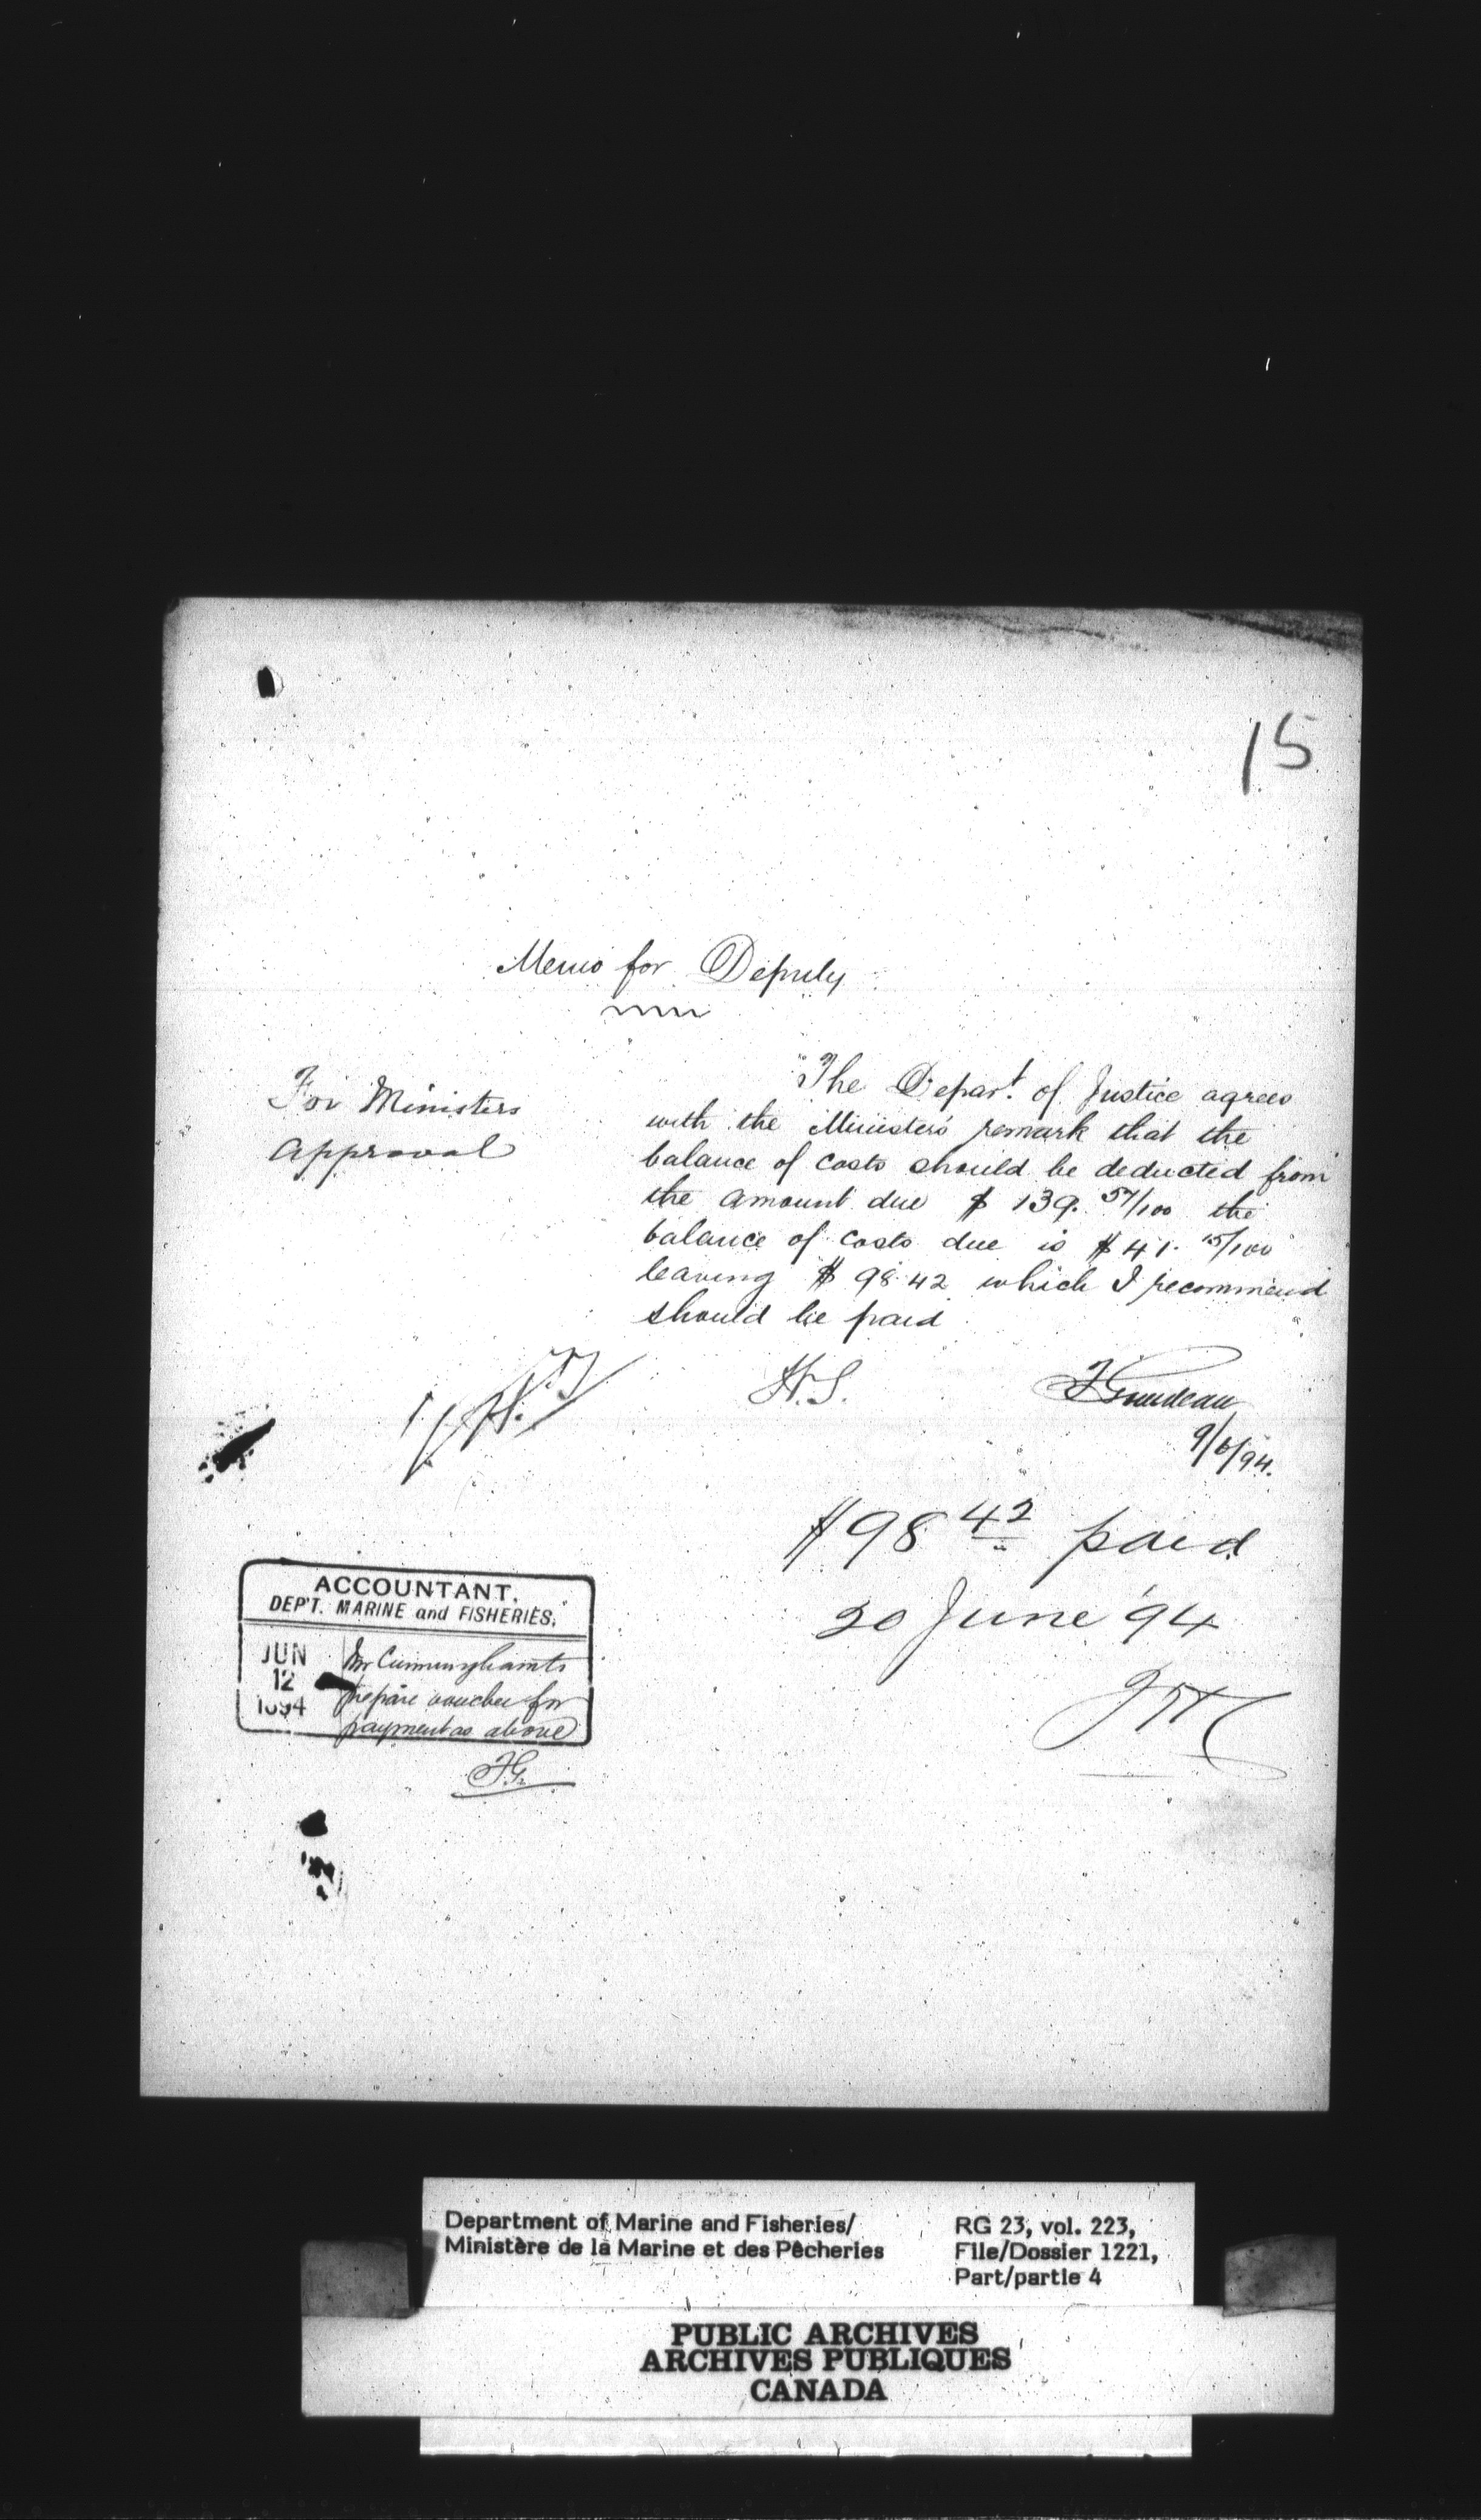 15
Memo for Deputy
For Ministers
approval
The Depart. of Justice agrees
with the Minister's remark that the
balance of costs should be deducted from
the amount due $139. 57/100 the
balance of costs due is $41. 15/100
leaving $98.42 which I recommend
should be paid
H.S.
F Gourdeau
9/6/94.
$98 42 paid
20 June '94
ACCOUNTANT.
DEP'T. MARINE and FISHERIES.
JUN
12
1894
Mr Cunningham to
prepare voucher for
payment as above
F.G.
Department of Marine and Fisheries/
Ministère de la Marine et des Pêcheries
RG 23, vol. 223,
File/Dossier 1221,
Part/partie 4
PUBLIC ARCHIVES
ARCHIVES PUBLIQUES
CANADA